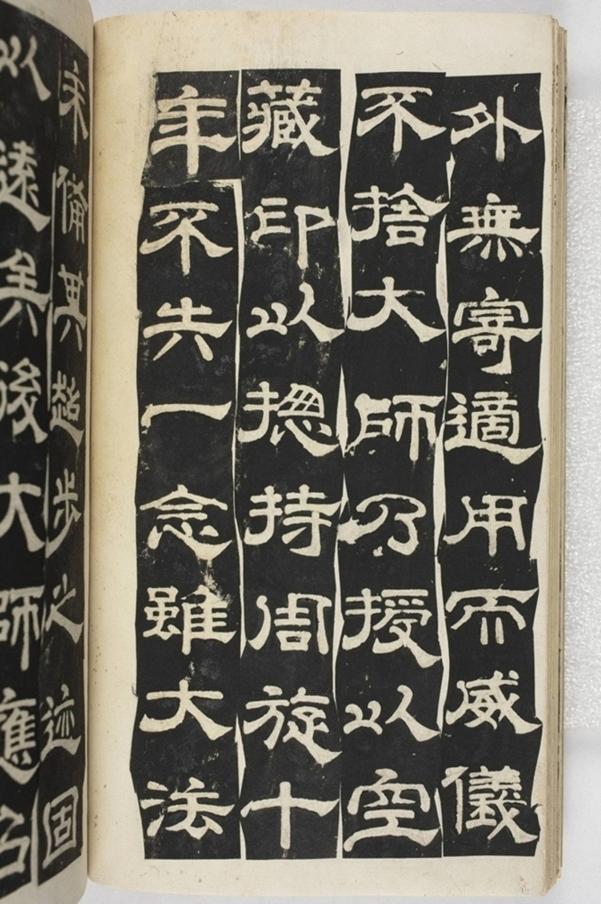 外無寄適用而威儀
不捨大師乃授以空
藏印以揔持周旋十
年不失一念雖大法
未備其步之迹固
以遠矣後大師應召